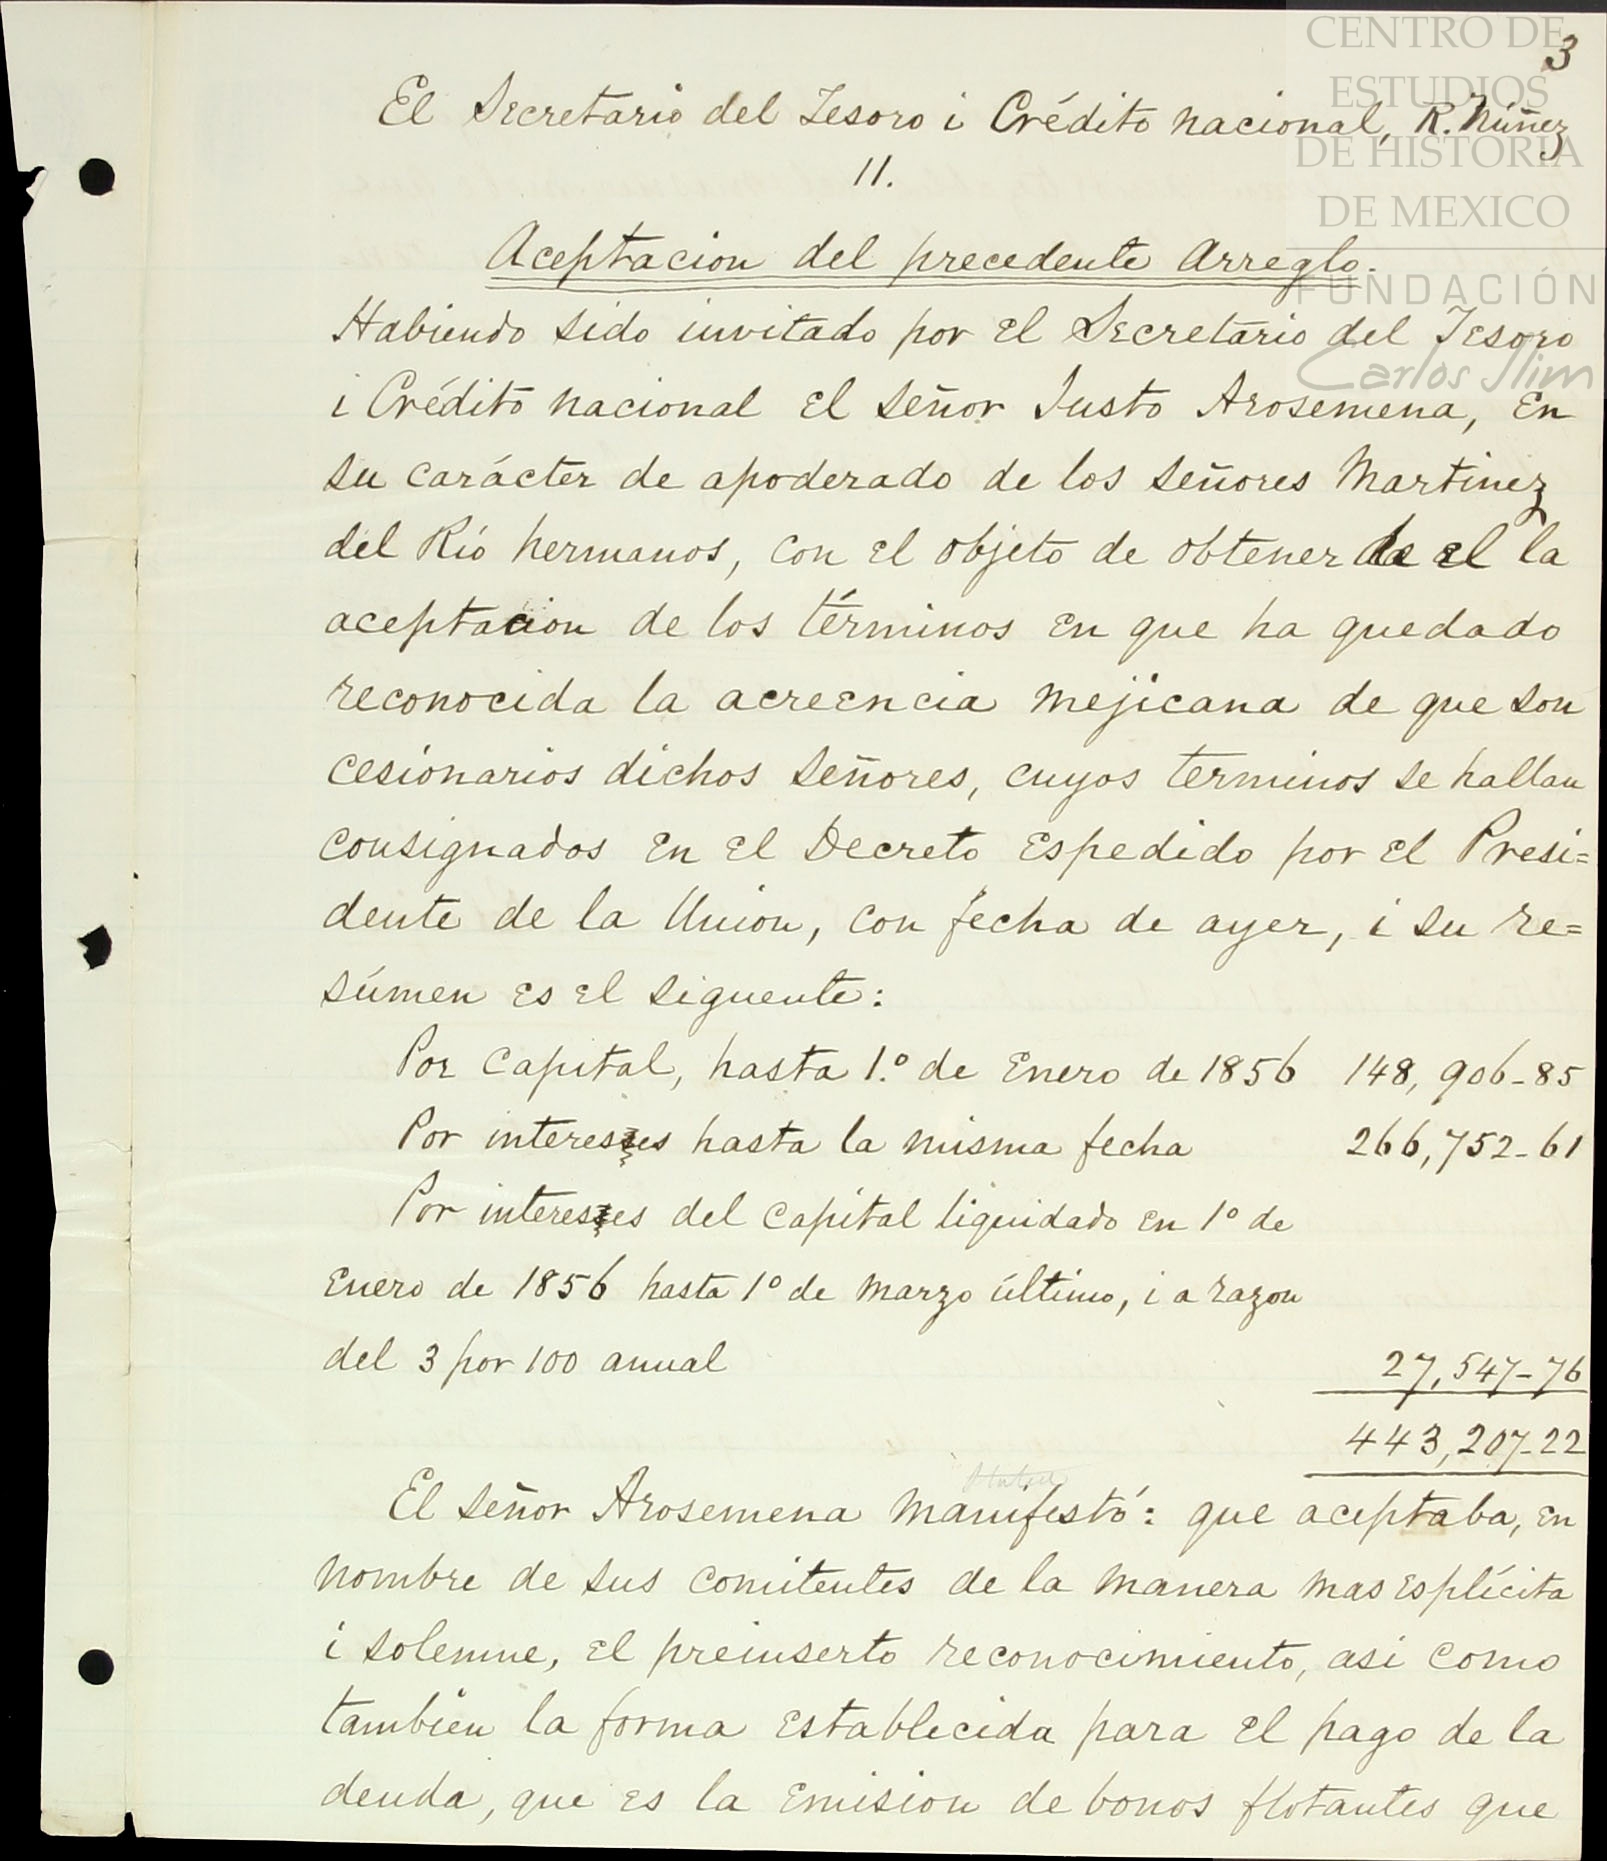 CENTRO DE
ESTUDIOS
DE HISTORIA
DE MEXICO
FUNDACIÓN
Carlos Slim
3
El Secretario del Tesoro i Crédito nacional, R. Núñez
11.
Aceptacion del precedente Arreglo.
Habiendo sido invitado por el Secretario del Tesoro
i Crédito nacional el señor Justo Arosemena, en
su carácter de apoderado de los señores Martinez
del Rio hermanos, con el objeto de obtener de el la
aceptacion de los términos en que ha quedado
reconocida la acreencia mejicana de que son
cesionarios dichos señores, cuyos terminos se hallan
consignados en el Decreto espedido por el Presi=
dente de la Union, con fecha de ayer, i su re=
súmen es el siguente:
Por capital, hasta 1.º de Enero de 1856 148,906-85
Por intereses hasta la misma fecha 266,752-61
Por intereses del capital liquidado en 1º de
Enero de 1856 hasta 1º de Marzo último, i a razon
del 3 por 100 anual 27,547-76
443,207-22
El señor Arosemena manifestó: que aceptaba, en
nombre de sus comitentes de la manera mas esplícita
i solemne, el preinserto reconocimiento, asi como
tambien la forma establecida para el pago de la
deuda, que es la emision de bonos flotantes que